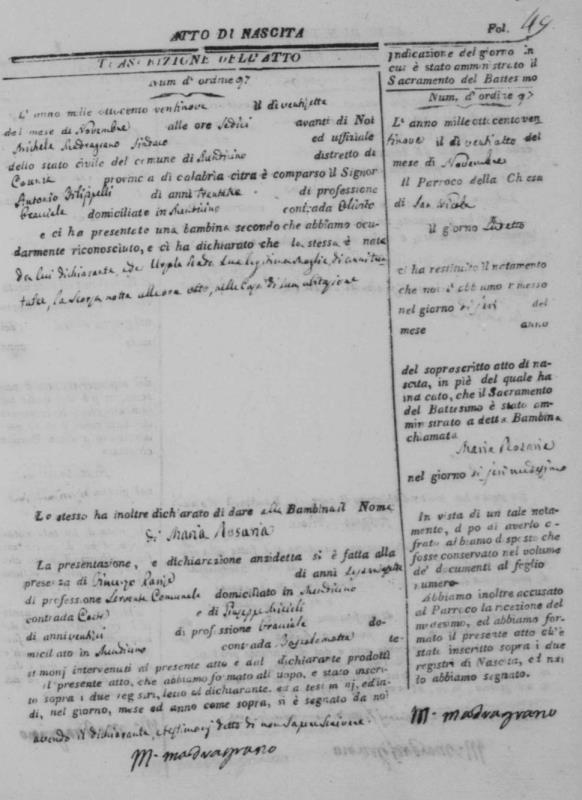 ATTO DI NASCITA
Fol. 49
TRASCRIZIONE DELL'ATTO
Num. d'ordine 97
L'anno mille ottocento ventinove il dì ventisette
del mese di Novembre alle ore sedici avanti di Noi
Michele Madragrano Sindaco ed uffiziale
dello stato civile del comune di Mendicino distretto di
Cosenza provincia di calabria citra è comparso il Signor
Antonio Filippelli di anni di professione
Bracciale domiciliato in Mendicino contrada
e ci ha presentato una bambina secondo che abbiamo ocu-
darmente riconosciuto, e ci ha dichiarato che la stessa è nata
da lui dichiarante, e da sua legittima moglie, di anni
la scorsa notte alle ore otto, nella Casa di sua abitazione
Lo stesso ha inoltre dich'arato di dare alla Bambina il Nome
di Maria Rosaria
La presentazione, e dichiarazione anzidetta si è fatta alla
presenza di Vincenzo di anni
di professione Servente Comunale domiciliato in Mendicino
contrada e di Giuseppe
di anni ventisei di professione Bracciale do-
miciliato in Mendicino contrada te-
stimonj intervenuti al presente atto e dal dichiarante prodotti
il presente atto, che abbiamo formato all'uopo, e stato inscri-
to sopra i due registri, letto al dichiarante, ed a testimonj, ed in-
di, nel giorno, mese ed anno come sopra, si è segnato da noi
avendo il dichiarante, e testimonj detto di non saper scrivere
M. madragrano
Indicazione del giorno in
cui è stato amministrato il
Sacramento del Battesimo
Num. d'ordine 97
L'anno mille ottocento ven
tinove il dì ventiotto del
mese di Novembre
Il Parroco della Chiesa
di San Nicola
il giorno
ci ha restituito il notamento
che noi l'abbiamo rimesso
nel giorno di jeri del
mese anno
del soprascritto atto di na-
scita, in piè del quale ha
indicato, che il Sacramento
del Battesimo è stato am-
ministrato a detta Bambina
chiamata
Maria Rosaria
nel giorno di jeri medesimo
In vista di un tale nota-
mento, dopo di averlo ci-
frato abbiamo disposto che
fosse conservato nel volume
de' documenti al foglio
numero
Abbiamo inoltre accusato
al Parroco la ricezione del
medesimo, ed abbiamo for-
mato il presente atto ch'è
stato inscritto sopra i due
registri di Nascita, ed noi
lo abbiamo segnato.
M. madragrano